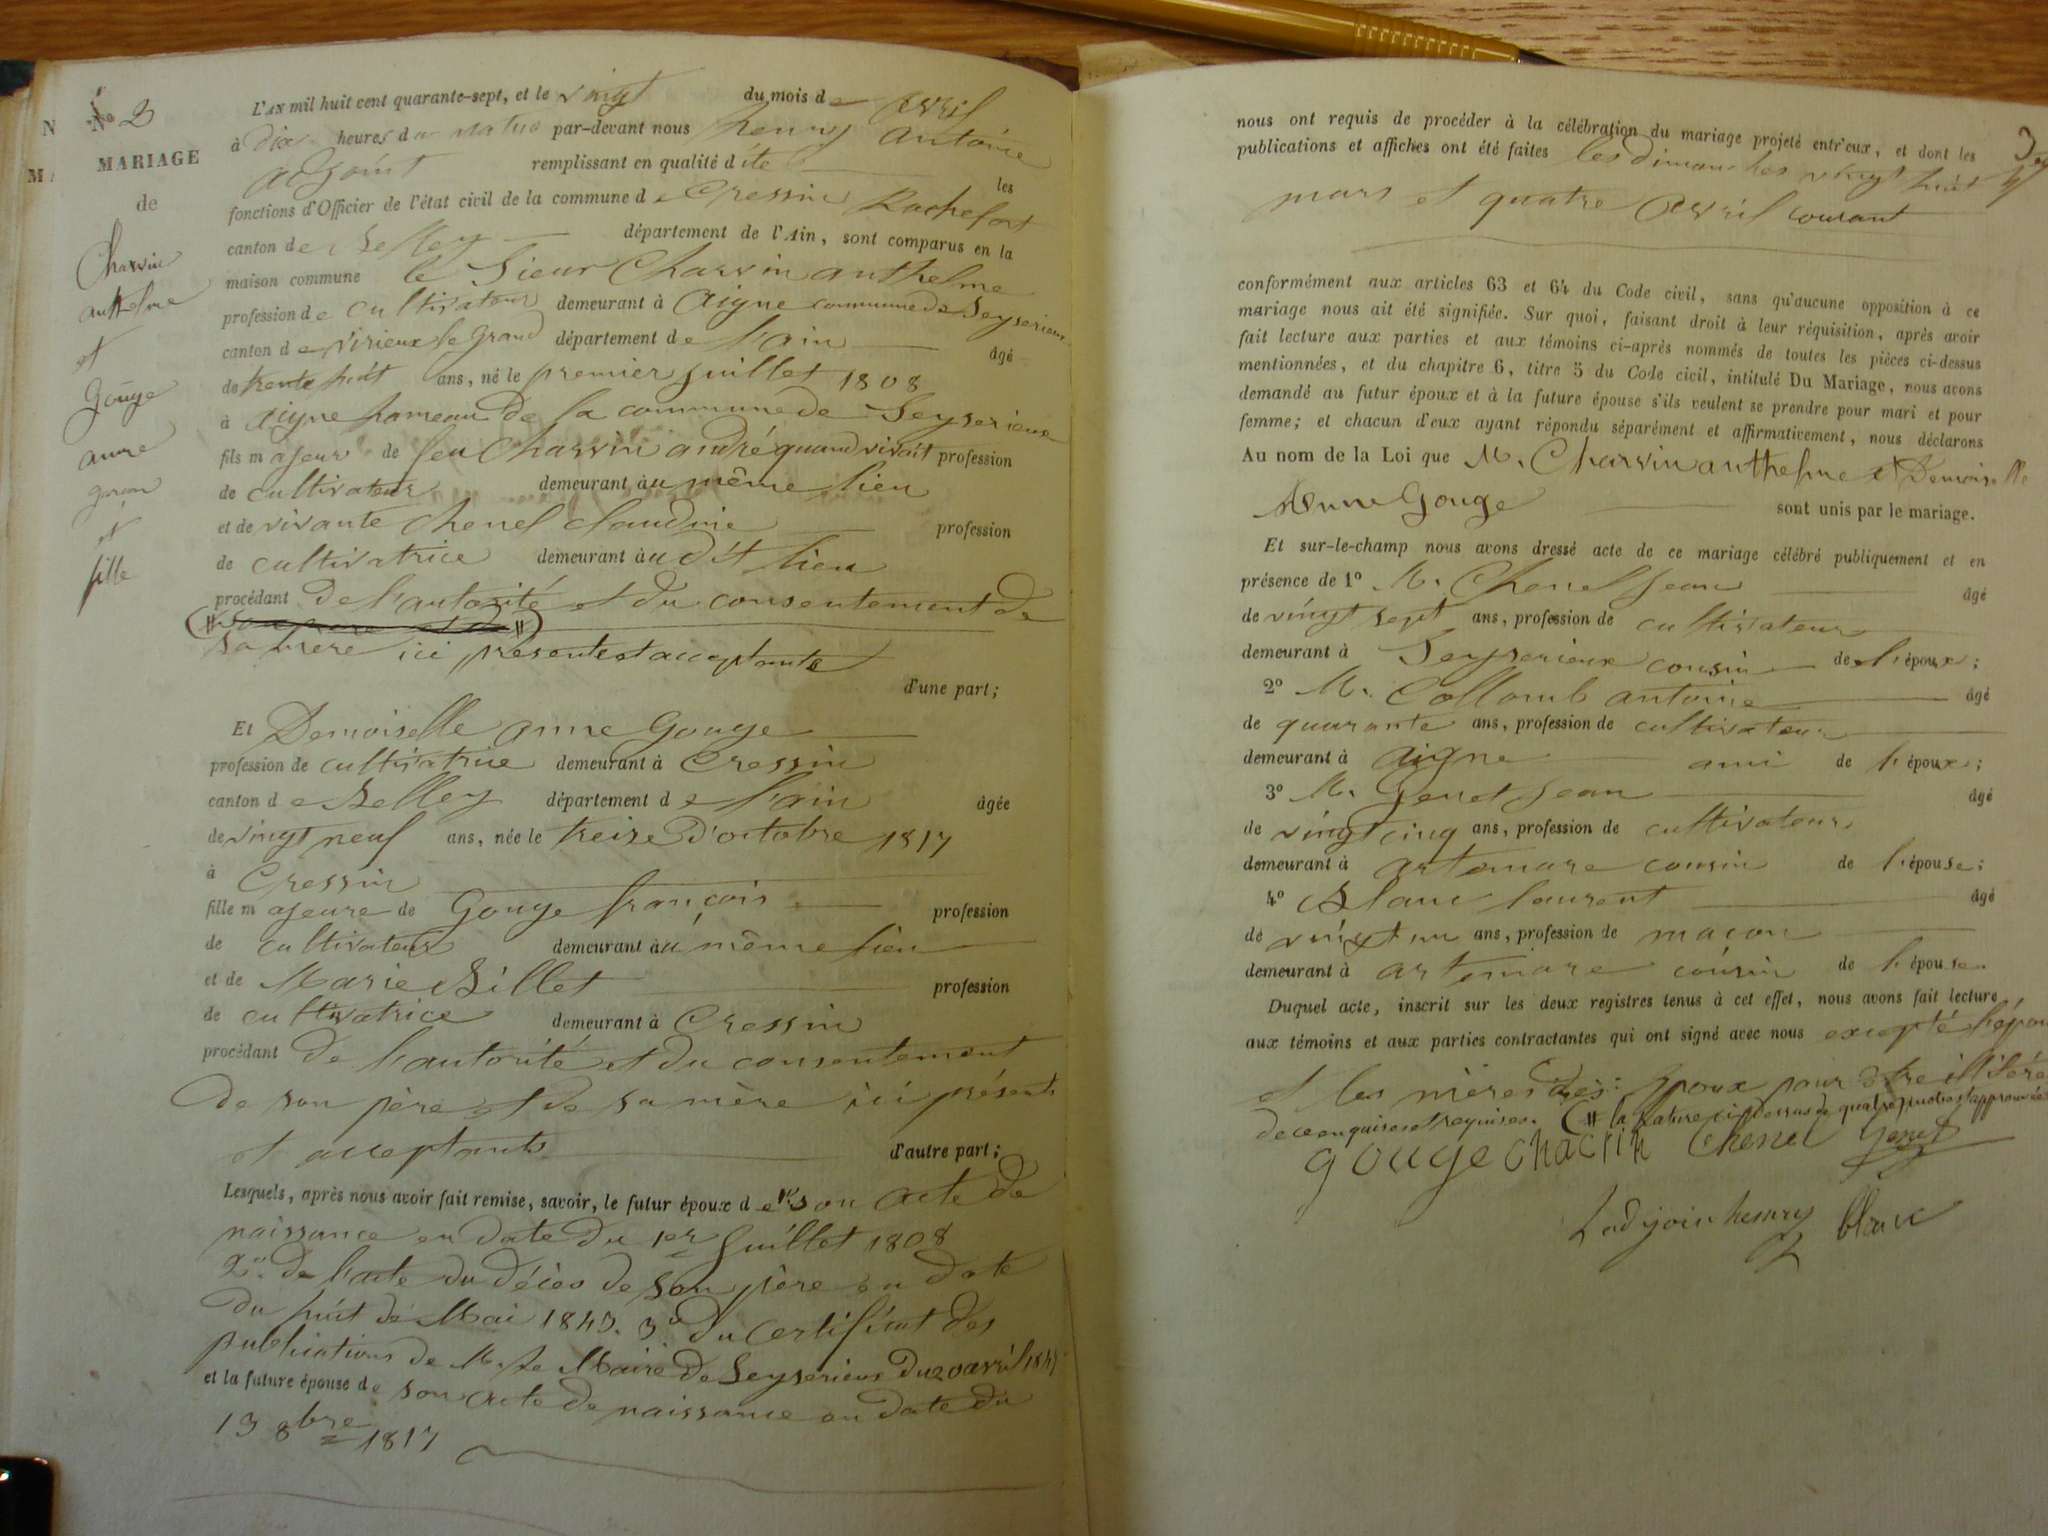 No 3
MARIAGE
de
Charvin
anthelme
et
Gouge
anne
garçon
et
fille
L'AN mil huit cent quarante-sept, et le vingt du mois de avril
à dix heures du matin par-devant nous henry antoine
adjoint remplissant en qualité d'ite les
fonctions d'Officier de l'état civil de la commune de Cressin Rochefort
canton de Belley département de l'Ain, sont comparus en la
maison commune le Sieur Charvin anthelme
profession de cultivateur demeurant à aigne commune de Seyserieux
canton de virieux le grand département de l'ain âgé
de trente huit ans, né le premier juillet 1808
à aigne hameau de la commune de Seyserieux
fils majeur de feu Charvin andré quand vivait profession
de cultivateur demeurant àu même lieu
et de vivante Chenel claudine profession
de cultivatrice demeurant àu dit lieu
procédant de l'autorité et du consentement de
(# son père et de #)
sa mère ici présente et acceptante
d'une part;
Et Demoiselle anne Gouge
profession de cultivatrice demeurant à Cressin
canton de Belley département de l'ain âgée
de vingt neuf ans, née le treise d'octobre 1817
à Cressin
fille majeure de Gouge françois profession
de cultivateur demeurant àu même lieu
et de Marie Billet profession
de cultivatrice demeurant à Cressin
procédant de l'autorité et du consentement
de son père et de sa mère ici présents
et acceptants d'autre part;
Lesquels, après nous avoir fait remise, savoir, le futur époux de 1° son acte de
naissance en date du 1er Juillet 1808
2° de l'acte du décès de son père en date
du huit de Mai 1843. 3° du certificat des
publications de M. le Maire de Seyserieux du 20 avril 1847
et la future épouse de son acte de naissance en date du
13 8bre 1817
nous ont requis de procéder à la célébration du mariage projeté entr'eux, et dont les
publications et affiches ont été faites les dimanches vingt huit
mars et quatre avril courant
conformément aux articles 63 et 64 du Code civil, sans qu'aucune opposition à ce
mariage nous ait été signifiée. Sur quoi, faisant droit à leur réquisition, après avoir
fait lecture aux parties et aux témoins ci-après nommés de toutes les pièces ci-dessus
mentionnées, et du chapitre 6, titre 5 du Code cicil, intitulé Du Mariage, nous avons
demandé au futur époux et à la future épouse s'ils veulent se prendre pour mari et pour
femme; et chacun d'eux ayant répondu séparément et affirmativement, nous déclarons
Au nom de la Loi que M. Charvin anthelme et Demoiselle
Anne Gouge sont unis par le mariage.
Et sur-le-champ nous avons dressé acte de ce mariage célébré publiquement et en
présence de 1° M. Chenel Jean âgé
de vingt sept ans, profession de cultivateur
demeurant à Seyserieux cousin de l'époux;
2° M. Collomb antoine âgé
de quarante ans, profession de cultivateur
demeurant à aigne ami de l'époux;
3° M. Genet Jean âgé
de vingt cinq ans, profession de cultivateur
demeurant à artemare cousin de l'épouse;
4° Blanc laurent âgé
de vingt un ans, profession de macon
demeurant à artemare cousin de l'épouse.
Duquel acte, inscrit sur les deux registres tenus à cet effet, nous avons fait lecture
aux témoins et aux parties contractantes qui ont signé avec nous excepté l'épou
et les mères des époux pour être illitéré
de ce enquises et requises. (# la rature ci dessus de quatre mots approuvée
gouge charvin Chenel Genet
Ladjoin henry blanc